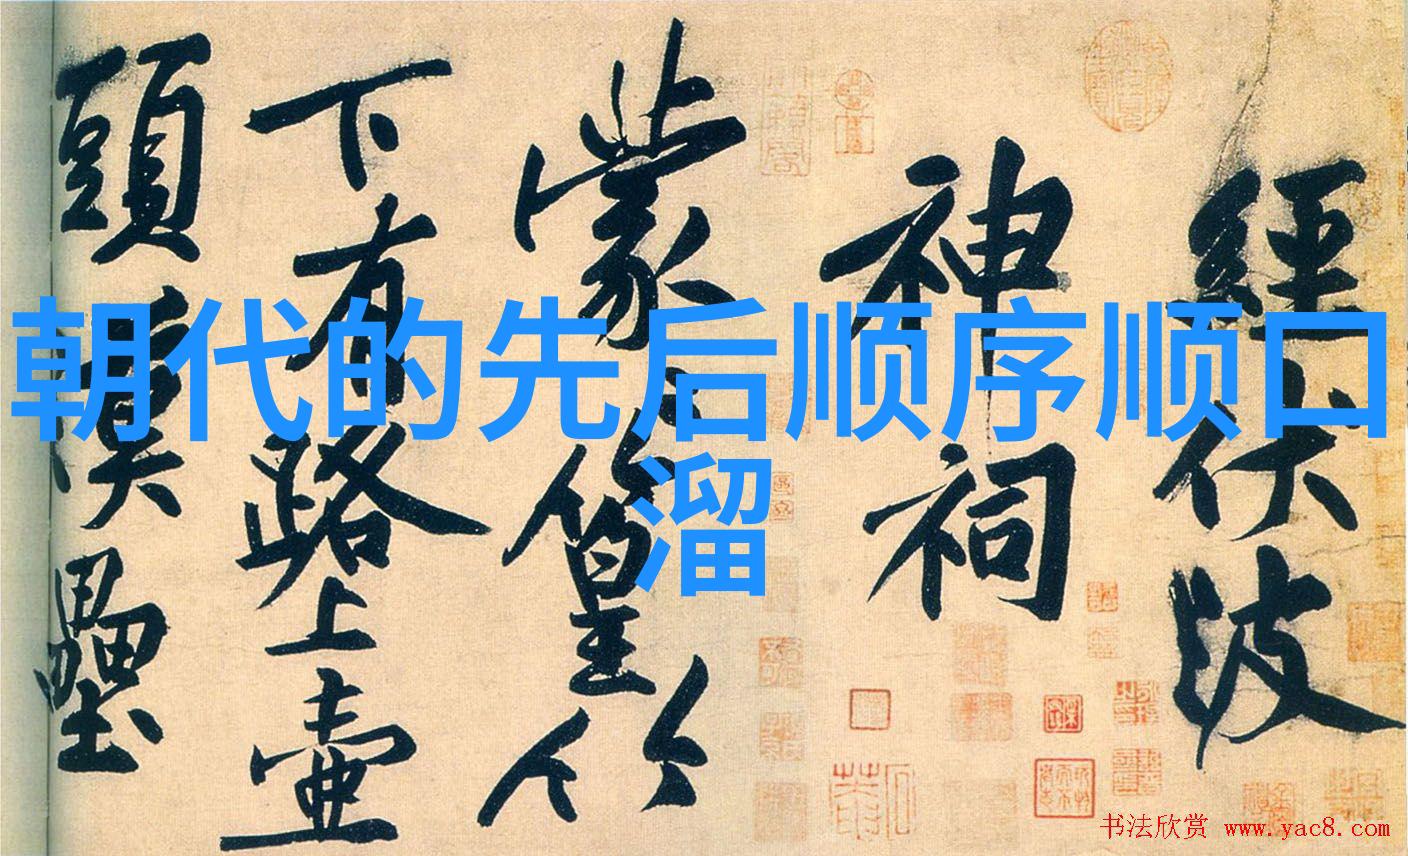 朝代的先后顺序顺口
溜
經伏波
神祠
蒙蒙篁竹
下有路上壺
頭漢壘
书法欣赏 www.yac8.com